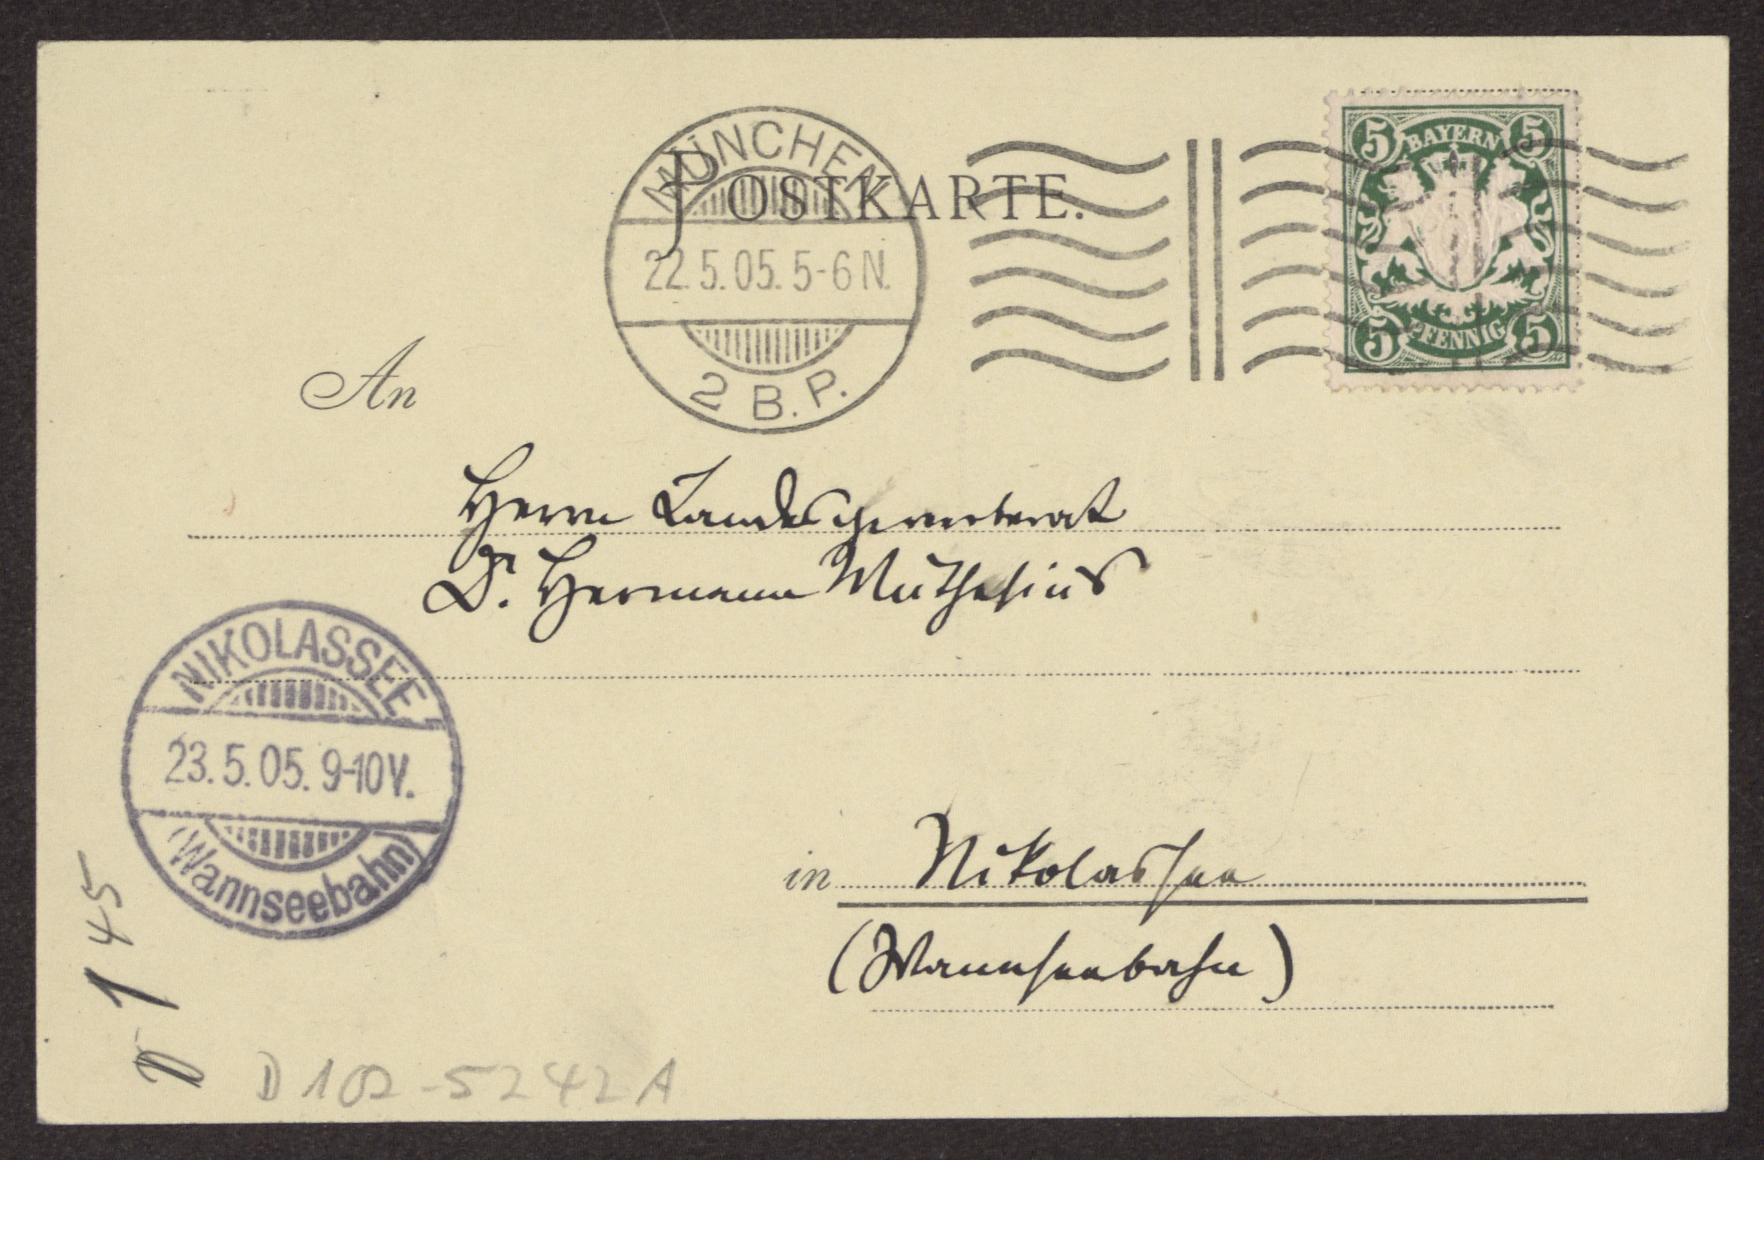 MÜNCHEN
POSTKARTE.
22.5.05. 5-6 N.
2 B.P.
5 BAYERN 5
5 PFENNIG 5
An
Herrn Landesgewerberat
Dr. Hermann Muthesius
NIKOLASSEE
23.5.05. 9-10V.
(Wannseebahn)
in Nikolassee
(Wannseebahn)
145
D 102-5242 A